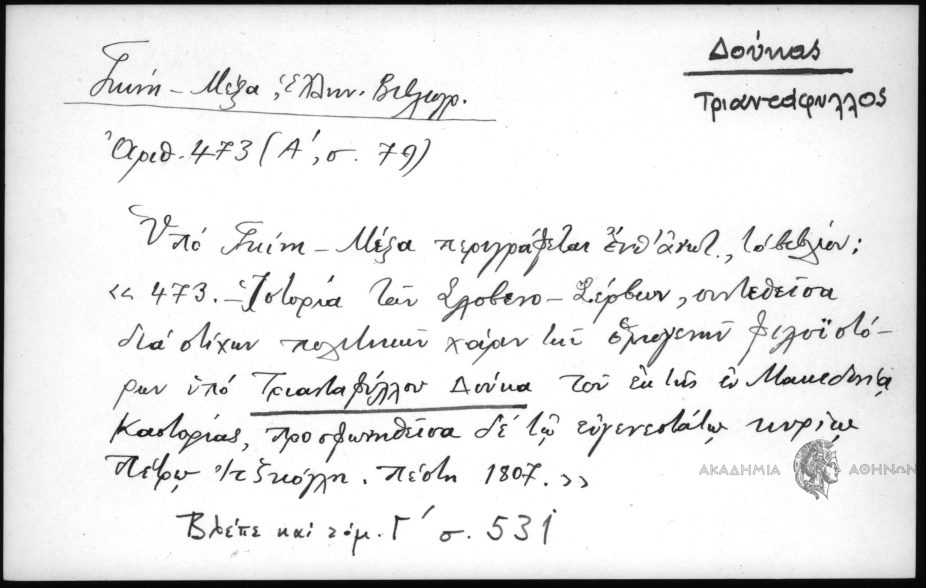 Δούκας
Τριαντάφυλλος
Γκίνη - Μέξα, Ἑλλην. Βιβλιογρ.
Ἀριθ. 473 (Α΄, σ. 79)
Ὑπό Γκίνη - Μέξα περιγράφεται ἔνθ' ἀνωτ., τό βιβλίον:
<< 473. - Ἱστορία τῶν Σλοβενο - Σέρβων, συντεθεῖσα
διά στίχων πολιτικῶν χάριν τῶν ὁμογενῶν φιλοϊστό-
ρων ὑπό Τριανταφύλλου Δούκα τοῦ ἐκ τῆς ἐν Μακεδονίᾳ
Καστορίας, προσφωνηθεῖσα δέ τῷ εὐγενεστάτῳ κυρίῳ
Πέτρῳ Ἰτζκόγλῃ. Πέστῃ 1807. >>
Βλέπε καί τόμ. Γ΄ σ. 531
ΑΚΑΔΗΜΙΑ ΑΘΗΝΩΝ